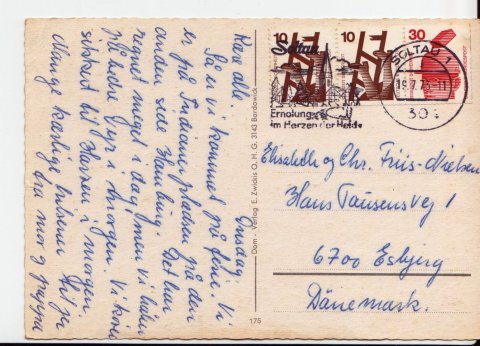 Onsdag.
Kære alle.
Så er vi kommet på ferie. Vi
er på Frediane pladsen på den
anden side Hamburg. Det har
regnet meget i dag, men vi håber
på bedre vejr i morgen. Vi kører
sikkert til Harzen i morgen.
Mange kærlige hilsener til jer
fra mor og pappa
Dom - Verlag E. Zwickis O. H. G. 3143 Bardowick
175
10
10
30
SOLTAU 1
Soltau
Erholung
im Herzen der Heide
304
Elisabeth og Chr. Friis-Nielsen
Hans Tausensvej 1
6700 Esbjerg
Dänemark.